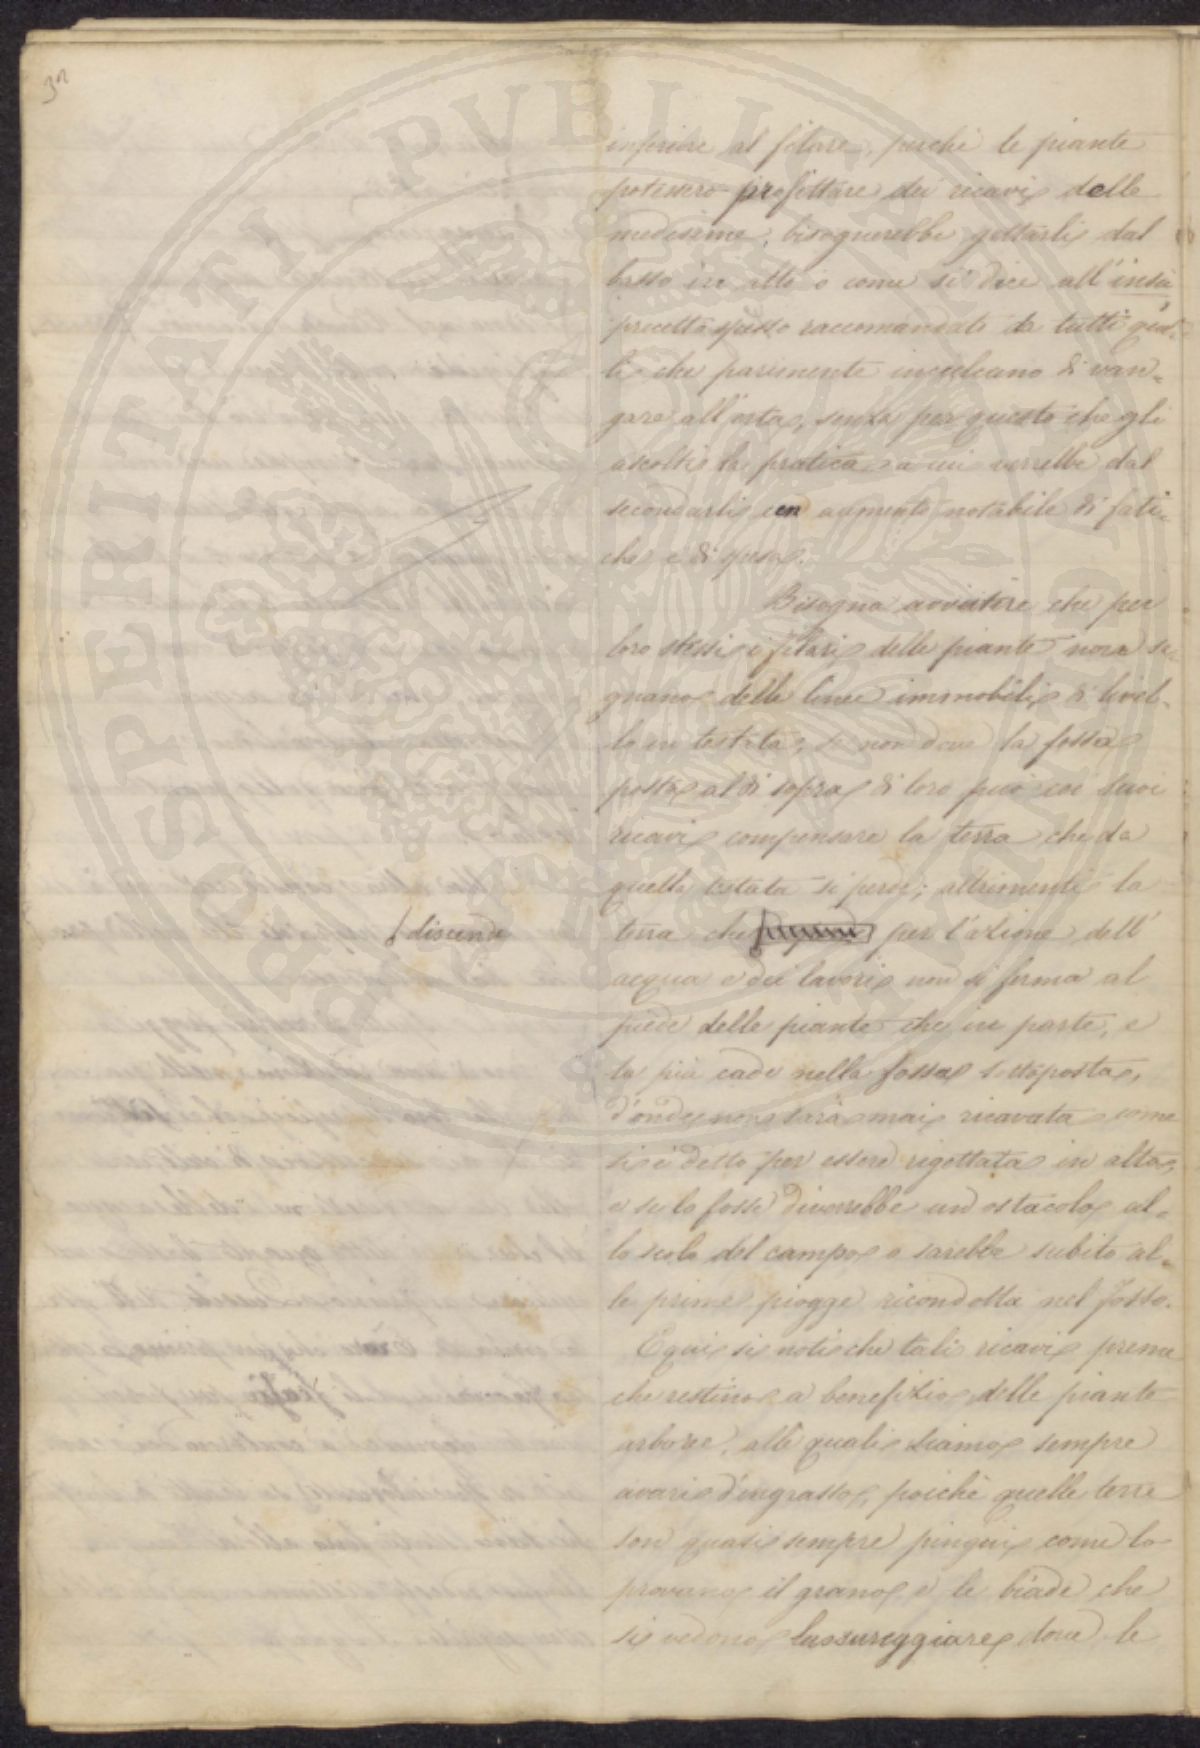 32
PROSPERITATI PUBLICAE AUGENDAE
inferiore al filare, perchè le piante
potessero profittare dei ricavi delle
medesime, bisognerebbe gettarli dal
basso in alto o come si dice all'insù
precetto spesso raccomandato da tutti quel-
li che parimente inculcano di van-
gare all'erta, senza per questo che gli
ascolti la pratica a cui verrebbe dal
secondarli un aumento notabile di fati-
che e di spesa.
Bisogna avvertire che per
loro stessi i filari delle piante non se-
gnano delle linee immobili di livel-
lo in testata, se non dove la fossa
posta al di sopra di loro può coi suoi
ricavi compensare la terra che da
quella testata si perde; altrimenti la
terra che per l'azione dell'
discende
acqua e dei lavori non si ferma al
piede delle piante che in parte, e
la più cade nella fossa sottoposta,
d'onde non sarà mai ricavata come
si è detto per essere rigettata in alto,
e se lo fosse diverrebbe un ostacolo al-
lo scolo del campo, o sarebbe subito al-
le prime piogge ricondotta nel fosso.
E qui si noti che tali ricavi preme
che restino a benefizio delle piante
arboree, alle quali siamo sempre
avari d'ingrasso, poichè quelle terre
son quasi sempre pingui, come lo
provano il grano e le biade che
si vedono lussureggiare dove le